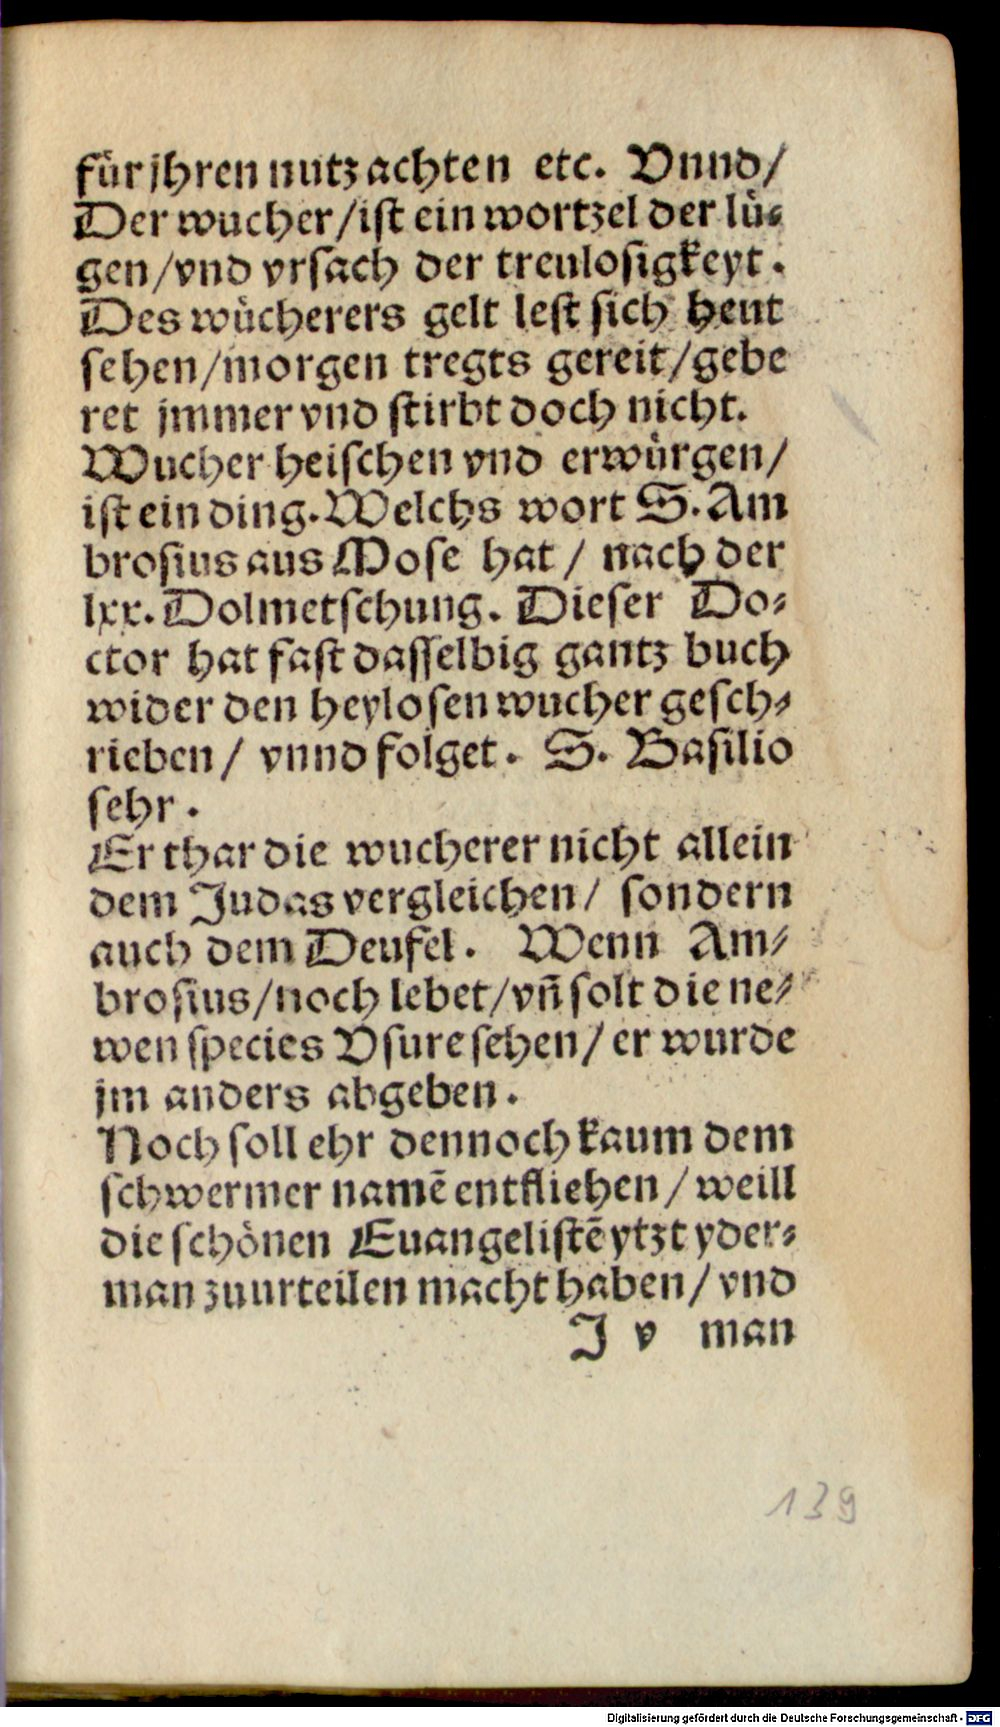 fuͤr jhren nutz achten etc. Vnnd/
Der wucher/ist ein wortzel der luͤ⸗
gen/vnd vrsach der treulosigkeyt.
Des wuͤcherers gelt lest sich heut
sehen/morgen tregts gereit/gebe
ret jmmer vnd stirbt doch nicht.
Wucher heischen vnd erwuͤrgen/
ist ein ding. Welchs wort S. Am
brosius aus Mose hat / nach der
lxx. Dolmetschung. Dieser Do⸗
ctor hat fast dasselbig gantz buch
wider den heylosen wucher gesch⸗
rieben/ vnnd folget. S. Basilio
sehr.
Er thar die wucherer nicht allein
dem Judas vergleichen/ sondern
auch dem Deufel. Wenn Am⸗
brosius/noch lebet/vñ solt die ne⸗
wen species Vsure sehen/ er wurde
jm anders abgeben.
Noch soll ehr dennoch kaum dem
schwermer namē entfliehen/ weill
die schoͤnen Euangelistē ytzt yder⸗
man zuurteilen macht haben/ vnd
J v man
139
Digitalisierung gefördert durch die Deutsche Forschungsgemeinschaft - DFG